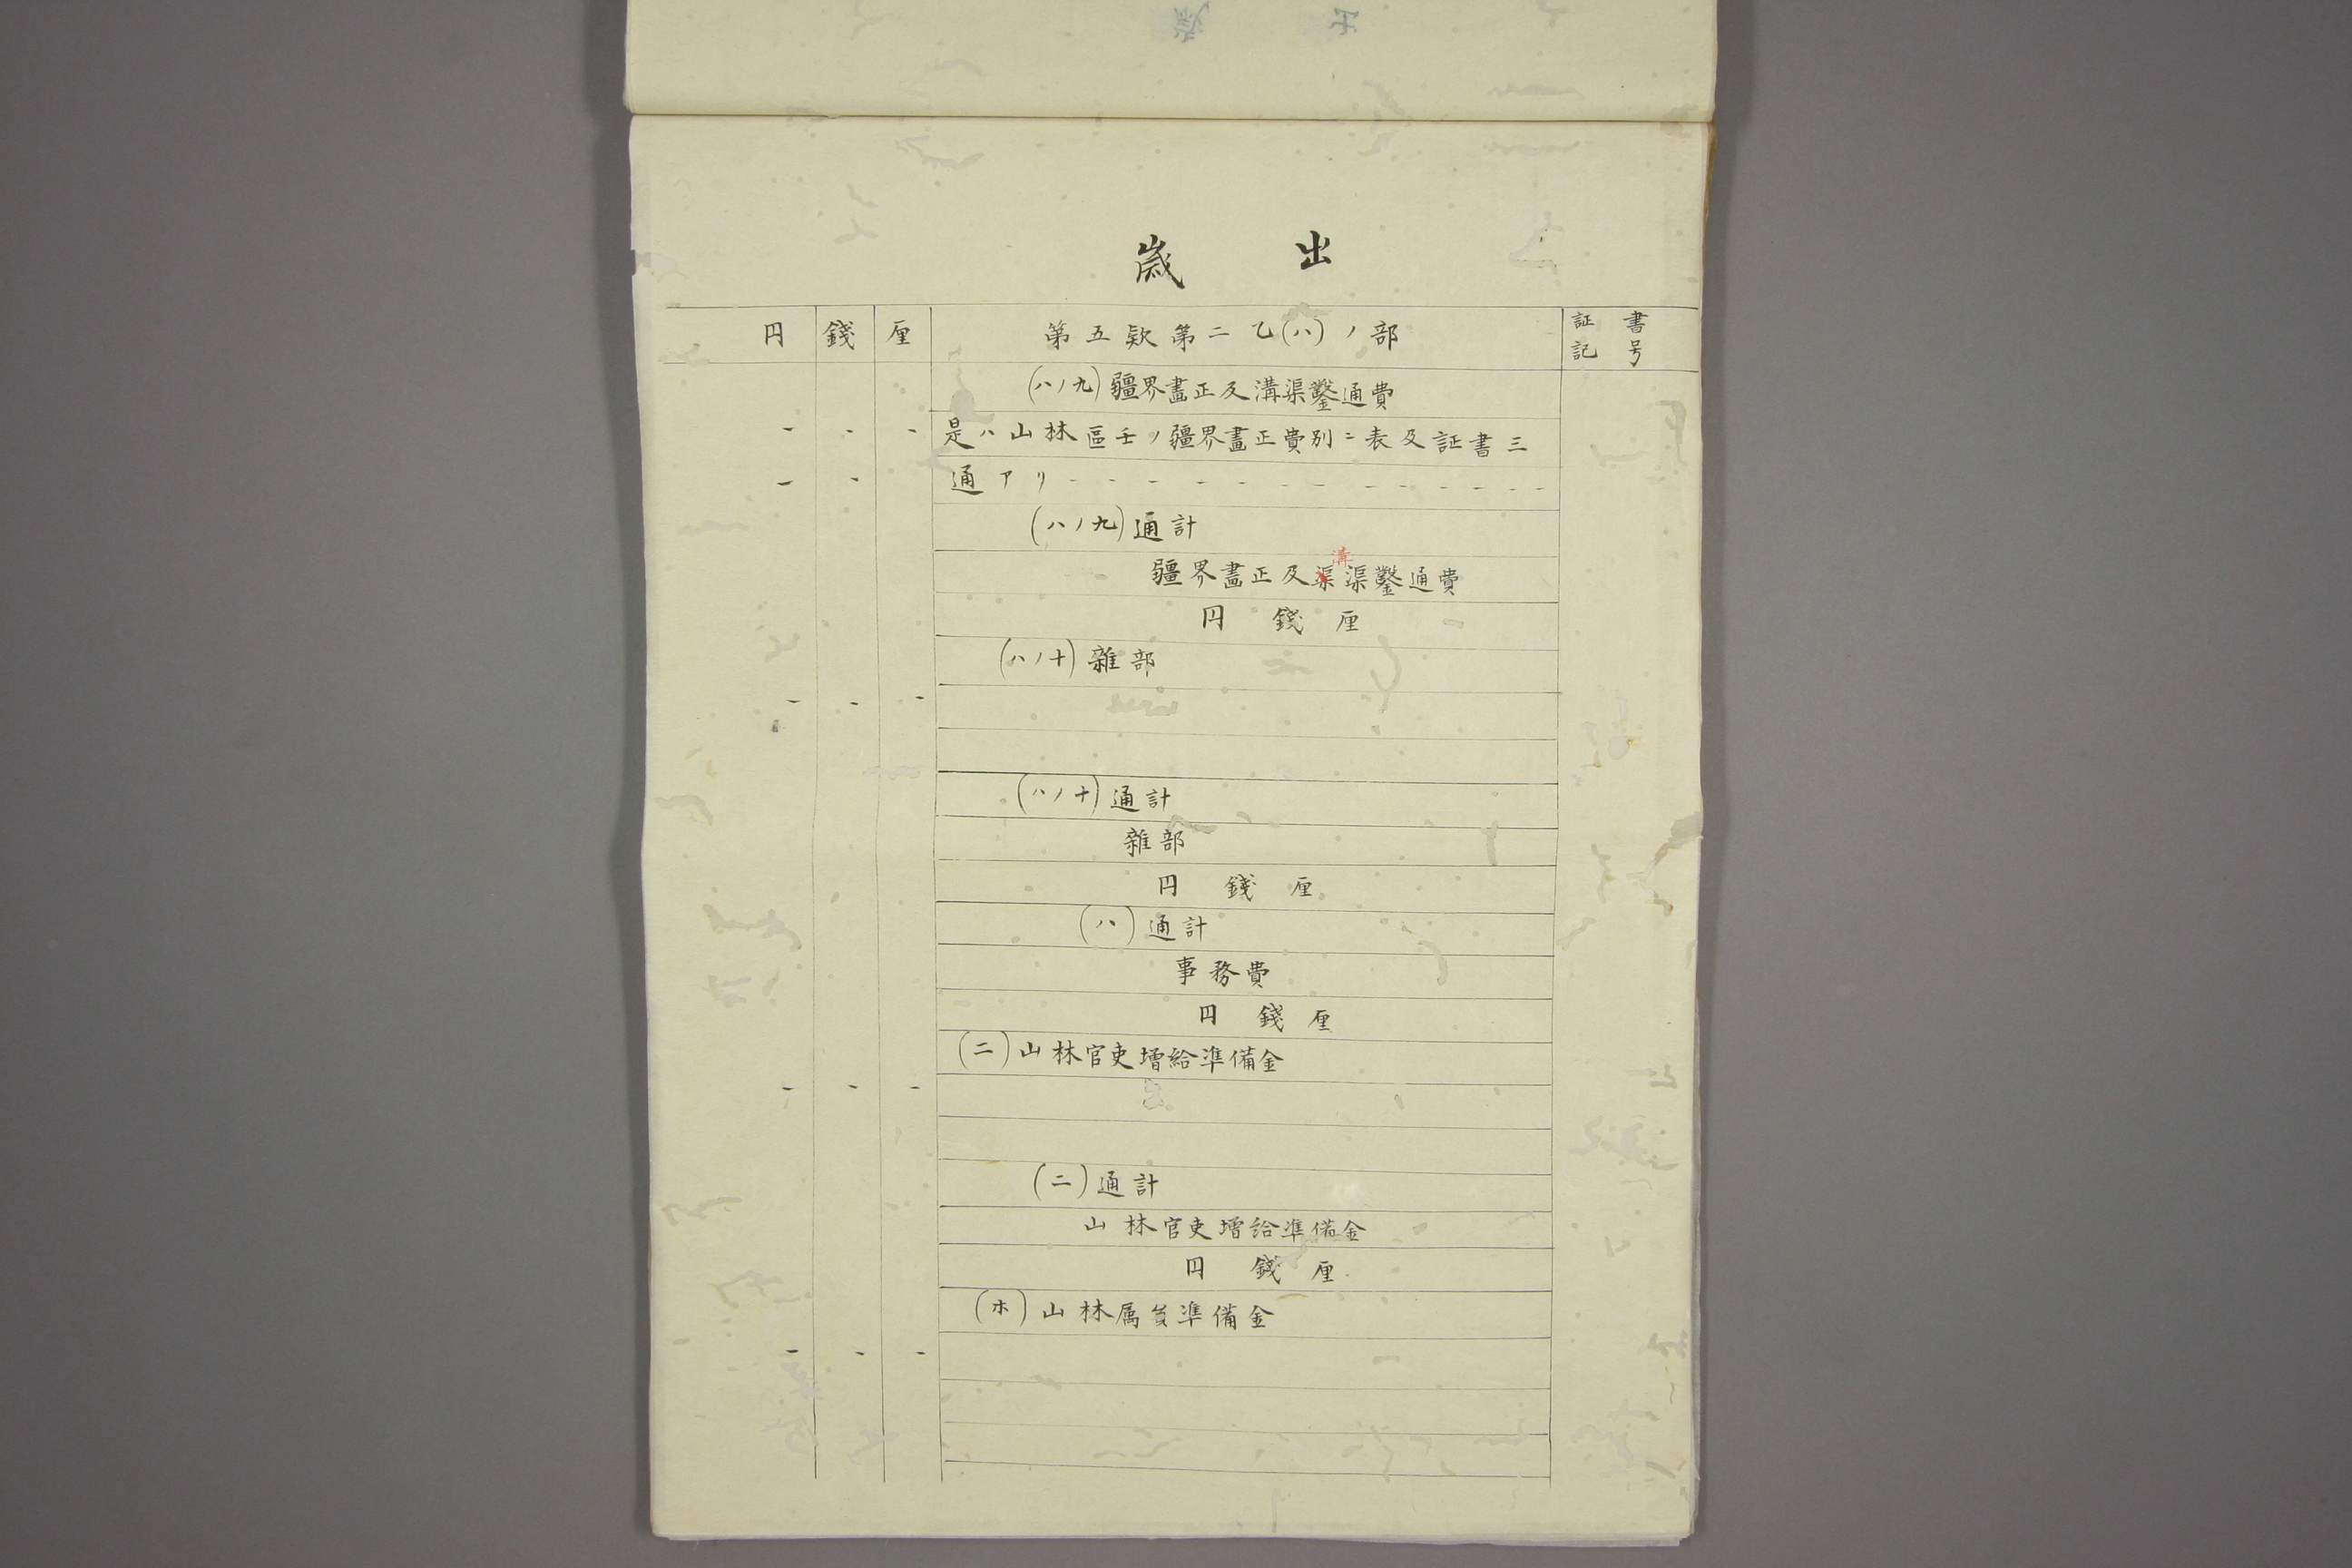 歳出
円 錢 厘 第五欵第二乙(ハ)ノ部 証書
記号
(ハノ九)疆界畫正及溝渠鑿通費
是ハ山林區壬ノ疆界畫正費別ニ表及証書三
通アリ
(ハノ九)通計
溝
疆界畫正及渠渠鑿通費
円 錢 厘
(ハノ十)雜部
(ハノ十)通計
雜部
円 錢 厘
(ハ)通計
事務費
円 錢 厘
(ニ)山林官吏増給準備金
(ニ)通計
山林官吏増給準備金
円 錢 厘
(ホ)山林属員準備金